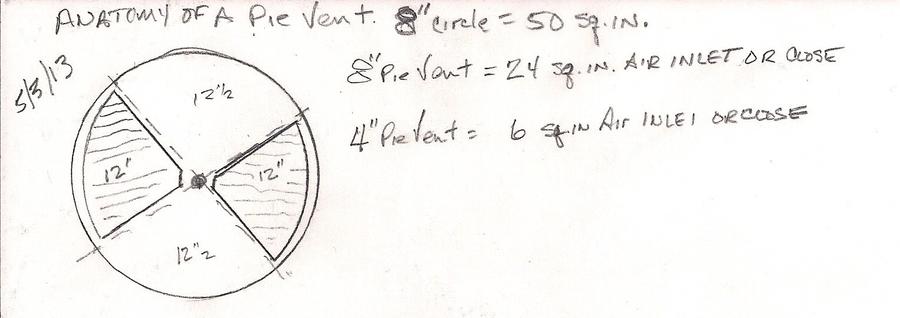 ANATOMY OF A Pie Vent. 8" circle = 50 sq.in.
5/3/13
8" Pie Vent = 24 sq.in. AIR INLET OR CLOSE
4" Pie Vent = 6 sq.in Air INLET OR CLOSE
12½
12" 12"
12"½